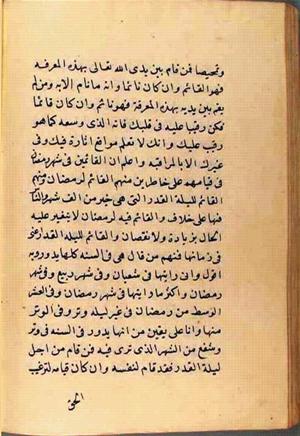 وتحيصا فمن قام بين يدى الله تعالى بهذه المعرفه
فهو القائم وان كان نائما وانه ما نام الا به ومن لم
يقم بين يديه بهذه المعرفة فهو نائم وان كان قائما
فكن رقيبا عليه فى قلبك فانه الذى وسعه كما هو
رقيب عليك وانك لا تعلم مواقع اثاره فيك وفى
غيرك الا بالمراقبه واعلم ان القائمين فى شهر رمضان
فى قيامهم على خاطرين منهم القائم لرمضان ومنهم
القائم لليلة القدر التى هى خير من الف شهر والناس
فيها على خلاف والقائم فيه لرمضان لا يتغير عليه
الحال بزيادة ولا نقصان والقائم لليلة القدر
فى زمانها فمنهم من قال هى فى السنه كلها تدور وبه
اقول وانى رايتها فى شعبان وفى شهر ربيع وفى شهر
رمضان واكثر ما رايتها فى شهر رمضان وفى العشر
الاوسط من رمضان فى غير ليلة وتر وفى الوتر
منها وانا على يقين من انها تدور فى السنه فى وتر
وشفع من الشهر الذى ترى فيه فمن قام من اجل
ليلة القدر فقد قام لنفسه وان كان قيامه لترغيب
الحق